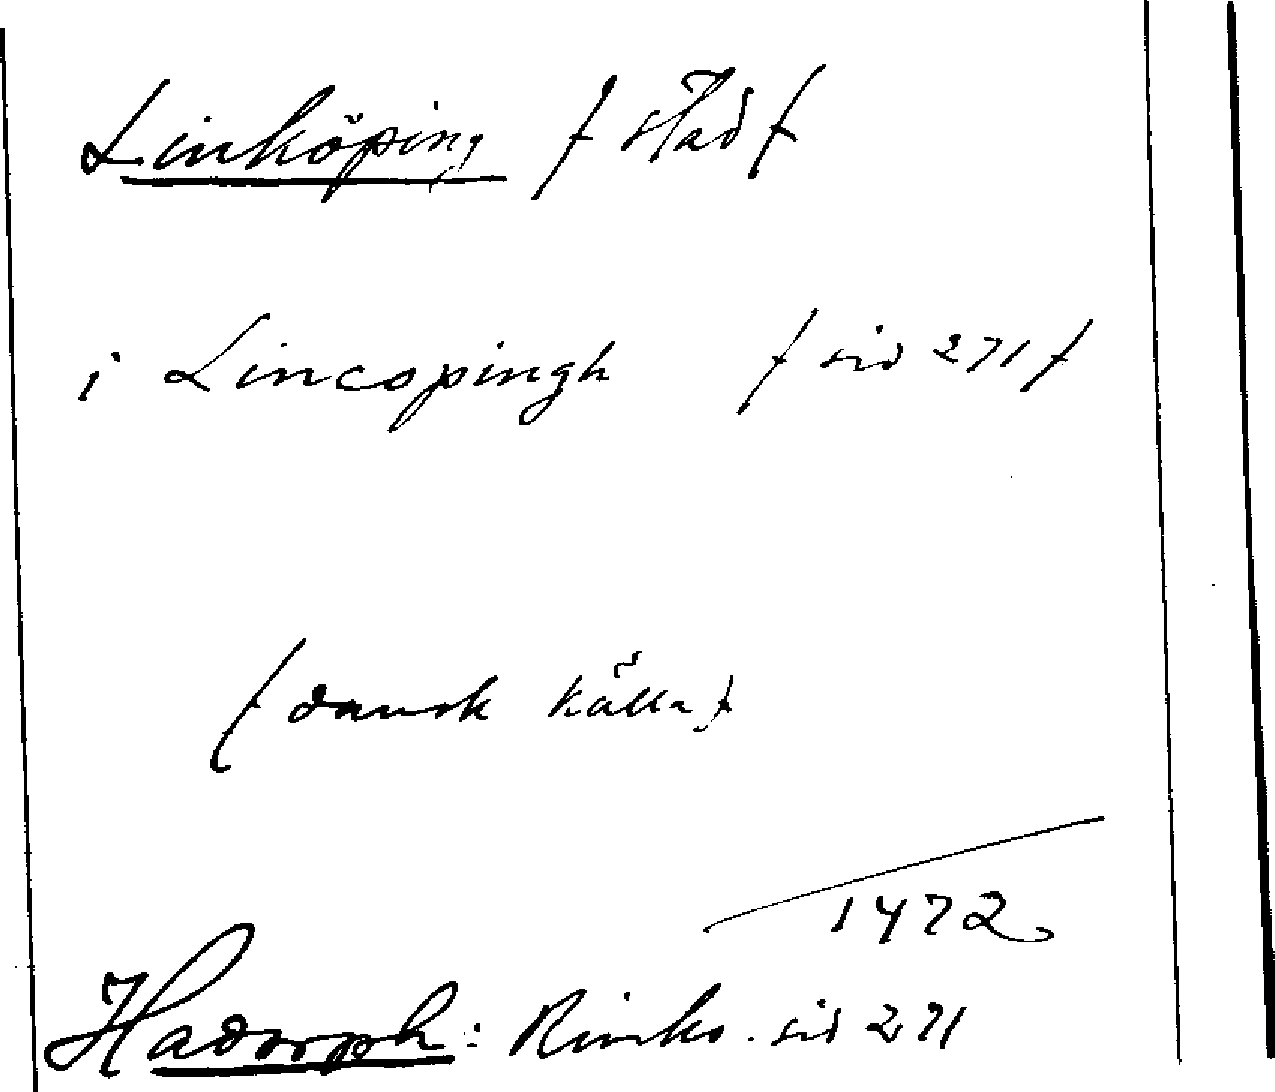 Linköping / stad /
i Lincopingh / sid 271 /
/ dansk källa /
1472
Hadorph: Rimkr. sid 271